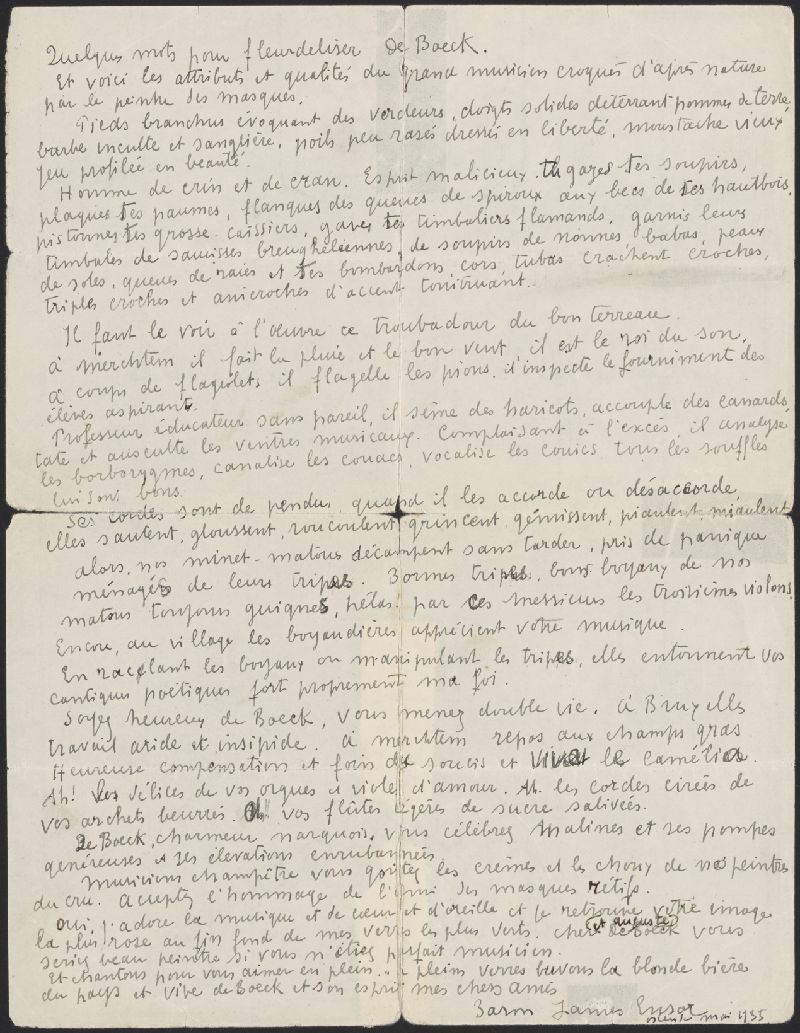 Quelques mots pour fleurdeliser De Boeck.
Et voici les attributs et qualités du grand musicien croqués d'après nature
par le peintre des masques.
Pieds branchus évoquant des verdeurs, doigts solides déterrant pommes de terre,
barbe inculte et sanglière, poils peu rasés dressés en liberté, moustache vieux
jeu profilée en beauté.
Homme de crin et de cran. Esprit malicieux. tu gazes tes soupirs,
plaques tes paumes, flanques des queues de spiroux aux becs de tes hautbois,
pistonnes tes grosse-caissiers, gaves tes timbaliers flamands, garnis leurs
timbales de saucisses breughéliennes, de soupirs de nonnes, babas, peaux
de soles, queues de raies et tes bombardons, cors, tubas crachent croches,
triples croches et anicroches d'accent tonitruant.
Il faut le voir à l'œuvre ce troubadour du bon terreau.
à merchtem il fait la pluie et le bon vent, il est le roi du son,
à coups de flageolets il flagelle les pions, d'inspecte le fourniment des
élèves aspirants.
Professeur éducateur sans pareil, il sème des haricots, accouple des canards,
tate et ausculte les ventres musicaux. Complaisant à l'excès, il analyse
les borborygmes, canalise les couacs, vocalise les couics, tous les souffles
lui sont bons.
Ses cordes sont de pendus, quand il les accorde ou désaccorde,
elles sautent, gloussent, roucoulent, grincent, gémissent, piaulent, miaulent
alors, nos minet-matous décampent sans tarder, pris de panique
ménagés de leurs tripes. Bonnes tripes, bons boyaux de nos
matous toujours guignés, hélas! par ces messieurs les troisièmes violons.
Encore, au village les boyaudières apprécient votre musique.
En racolant les boyaux ou manipulant les tripes, elles entonnent vos
cantiques poétiques fort proprement ma foi.
Soyez heureux de Boeck, vous menez double vie. à Bruxelles
travail aride et insipide. à merchtem repos aux champs gras
Heureuse compensations et foin de soucis et vivat le camélia.
Ah! les délices de vos orgues et violes d'amour. Ah. les cordes cirées de
vos archets beurrés. Ah vos flûtes légères de sucre salivées.
De Boeck, charmeur narquois, vous célébrez Malines et ses pompes
généreuses et ses élévations enrubannées
Musicien champêtre vous goûtez les crèmes et les choux de nos peintres
du cru. Acceptez l'hommage de l'ami des masques rétifs.
Oui, j'adore la musique et de cœur et d'oreille et je retrouve votre image
la plus rose au fin fond de mes verres les plus verts. cher et auguste de Boeck vous
seriez beau peintre si vous n'étiez parfait musicien.
Et chantons pour vous aimer en plein.. à pleins verres buvons la blonde bière
du pays et Vive de Boeck et son esprit mes chers amis
Baron James Ensor
ostende mai 1935